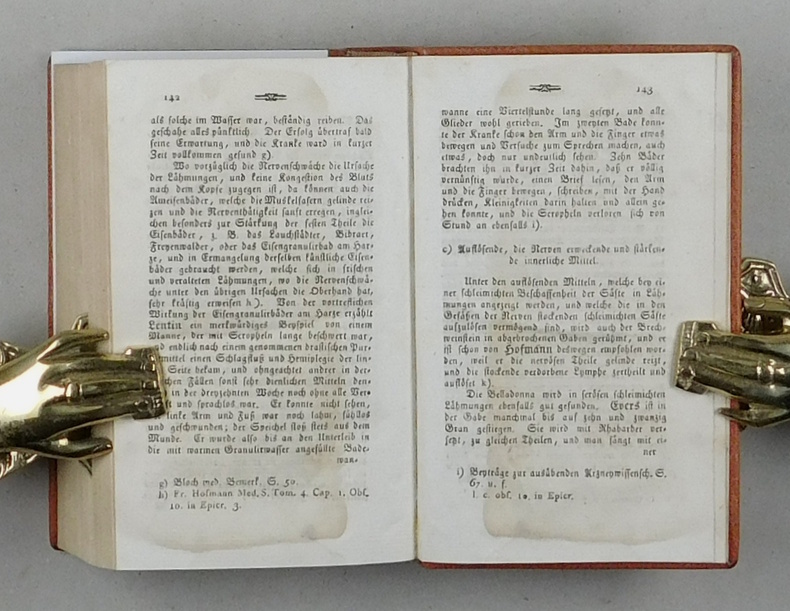 142
als solche im Wasser war, beständig reiben. Das
geschahe alles pünktlich. Der Erfolg übertraf bald
seine Erwartung, und die Kranke ward in kurzer
Zeit vollkommen gesund g).
Wo vorzüglich die Nervenschwäche die Ursache
der Lähmungen, und keine Kongestion des Bluts
nach dem Kopfe zugegen ist, da können auch die
Ameisenbäder, welche die Muskelfasern gelinde rei-
zen und die Nerventhätigkeit sanft erregen, inglei-
chen besonders zur Stärkung der festen Theile die
Eisenbäder, z. B. das Lauchstädter, Bibraer,
Freyenwalder, oder das Eisengranulirbad am Har-
ze, und in Ermangelung derselben künstliche Eisen-
bäder gebraucht werden, welche sich in frischen
und veralteten Lähmungen, wo die Nervenschwä-
che unter den übrigen Ursachen die Oberhand hat,
sehr kräftig erweisen h). Von der vortreflichen
Wirkung der Eisengranulirbäder am Harze erzählt
Lentin ein merkwürdiges Beyspiel von einem
Manne, der mit Skropheln lange beschwert war,
und endlich nach einem genommenen drastischen Pur-
mittel einen Schlagfluß und Hemiplegie der lin-
Seite bekam, und ohngeachtet andrer in der-
chen Fällen sonst sehr dienlichen Mitteln den-
in der dreyzehnten Woche noch ohne alle Ver-
ft und sprachlos war. Er konnte nicht sehen,
linke Arm und Fuß war noch lahm, fühllos
und geschwunden; der Speichel floß stets aus dem
Munde. Er wurde also bis an den Unterleib in
die mit warmen Granulirwasser angefüllte Bade-
wan-
g) Bloch med. Bemerk. S. 50.
h) Fr. Hofmann Med. S. Tom. 4. Cap. 1. Obs.
10. in Epicr. 3.
143
wanne eine Viertelstunde lang gesetzt, und alle
Glieder wohl gerieben. Im zweyten Bade konn-
te der Kranke schon den Arm und die Finger etwas
bewegen und Versuche zum Sprechen machen, auch
etwas, doch nur undeutlich sehen. Zehn Bäder
brachten ihn in kurzer Zeit dahin, daß er völlig
vernünftig wurde, einen Brief lesen, den Arm
und die Finger bewegen, schreiben, mit der Hand
drücken, Kleinigkeiten darin halten und allein ge-
hen konnte, und die Skropheln verloren sich von
Stund an ebenfalls i).
c) Auflösende, die Nerven erweckende und stärken-
de innerliche Mittel.
Unter den auflösenden Mitteln, welche bey ei-
ner schleimichten Beschaffenheit der Säfte in Läh-
mungen angezeigt werden, und welche die in den
Gefäßen der Nerven stockenden schleimichten Säfte
aufzulösen vermögend sind, wird auch der Brech-
weinstein in abgebrochenen Gaben gerühmt, und er
ist schon von Hofmann deswegen empfohlen wor-
den, weil er die nervösen Theile gelinde reizt,
und die stockende verdorbene Lymphe zertheilt und
auflöset k).
Die Belladonna wird in serösen schleimichten
Lähmungen ebenfalls gut gefunden. Evers ist in
der Gabe manchmal bis auf zehn und zwanzig
Gran gestiegen. Sie wird mit Rhabarber ver-
setzt, zu gleichen Theilen, und man fängt mit ei-
ner
i) Beyträge zur ausübenden Arzneywissensch. S.
67. u. f.
l. c. obs. 10. in Epicr.